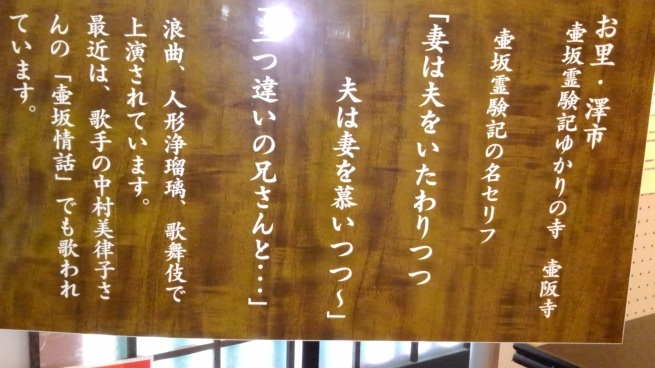 お里・澤市
壷坂霊験記ゆかりの寺　壷阪寺
壷坂霊験記の名セリフ
「妻は夫をいたわりつつ
夫は妻を慕いつつ～」
「三つ違いの兄さんと・・・」
浪曲、人形浄瑠璃、歌舞伎で
上演されています。
最近は、歌手の中村美律子さ
んの「壷坂情話」でも歌われ
ています。